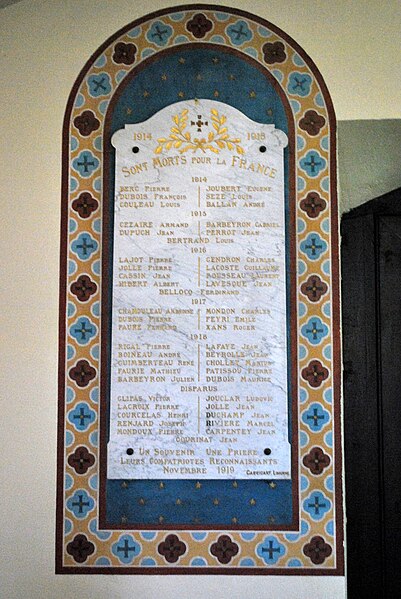 1914 1918
SONT MORTS POUR LA FRANCE
1914
BERC PIERRE JOUBERT EUGENE
DUBOIS FRANÇOIS SEZE LOUIS
COULEAU LOUIS BALLAN ANDRÉ
1915
CEZAIRE ARMAND BARBEYRON GABRIEL
DUPUCH JEAN PERROT JEAN
BERTRAND LOUIS
1916
LAJOT PIERRE GENDRON CHARLES
JOLLE PIERRE LACOSTE GUILLAUME
CASSIN JEAN ROUSSEAU LAURENT
HIBERT ALBERT LAVESQUE JEAN
BELLOCQ FERDINAND
1917
CHANOULEAU MONDON CHARLES
DUBOIS PIERRE PEYRI EMILE
FAURE FERNAND KANS ROGER
1918
RIGAL PIERRE LAFAYE JEAN
BOINEAU ANDRÉ BEYROLLE JEAN
GUIMBERTEAU RENÉ CHOLLET MARTIN
FAURIE MATHIEU PATISSOU PIERRE
BARBEYRON JULIEN DUBOIS MAURICE
DISPARUS
GLIPAS VICTOR JOUCLAR LUDOVIC
LACROIX PIERRE JOLLE JEAN
COURCELAS HENRI DUCHAMP JEAN
RENJARD JOSEPH RIVIERE MARCEL
MONDOUX PIERRE CARPENTEY JEAN
GOURINAT JEAN
UN SOUVENIR UNE PRIÈRE
LEURS COMPATRIOTES RECONNAISSANTS
NOVEMBRE 1919